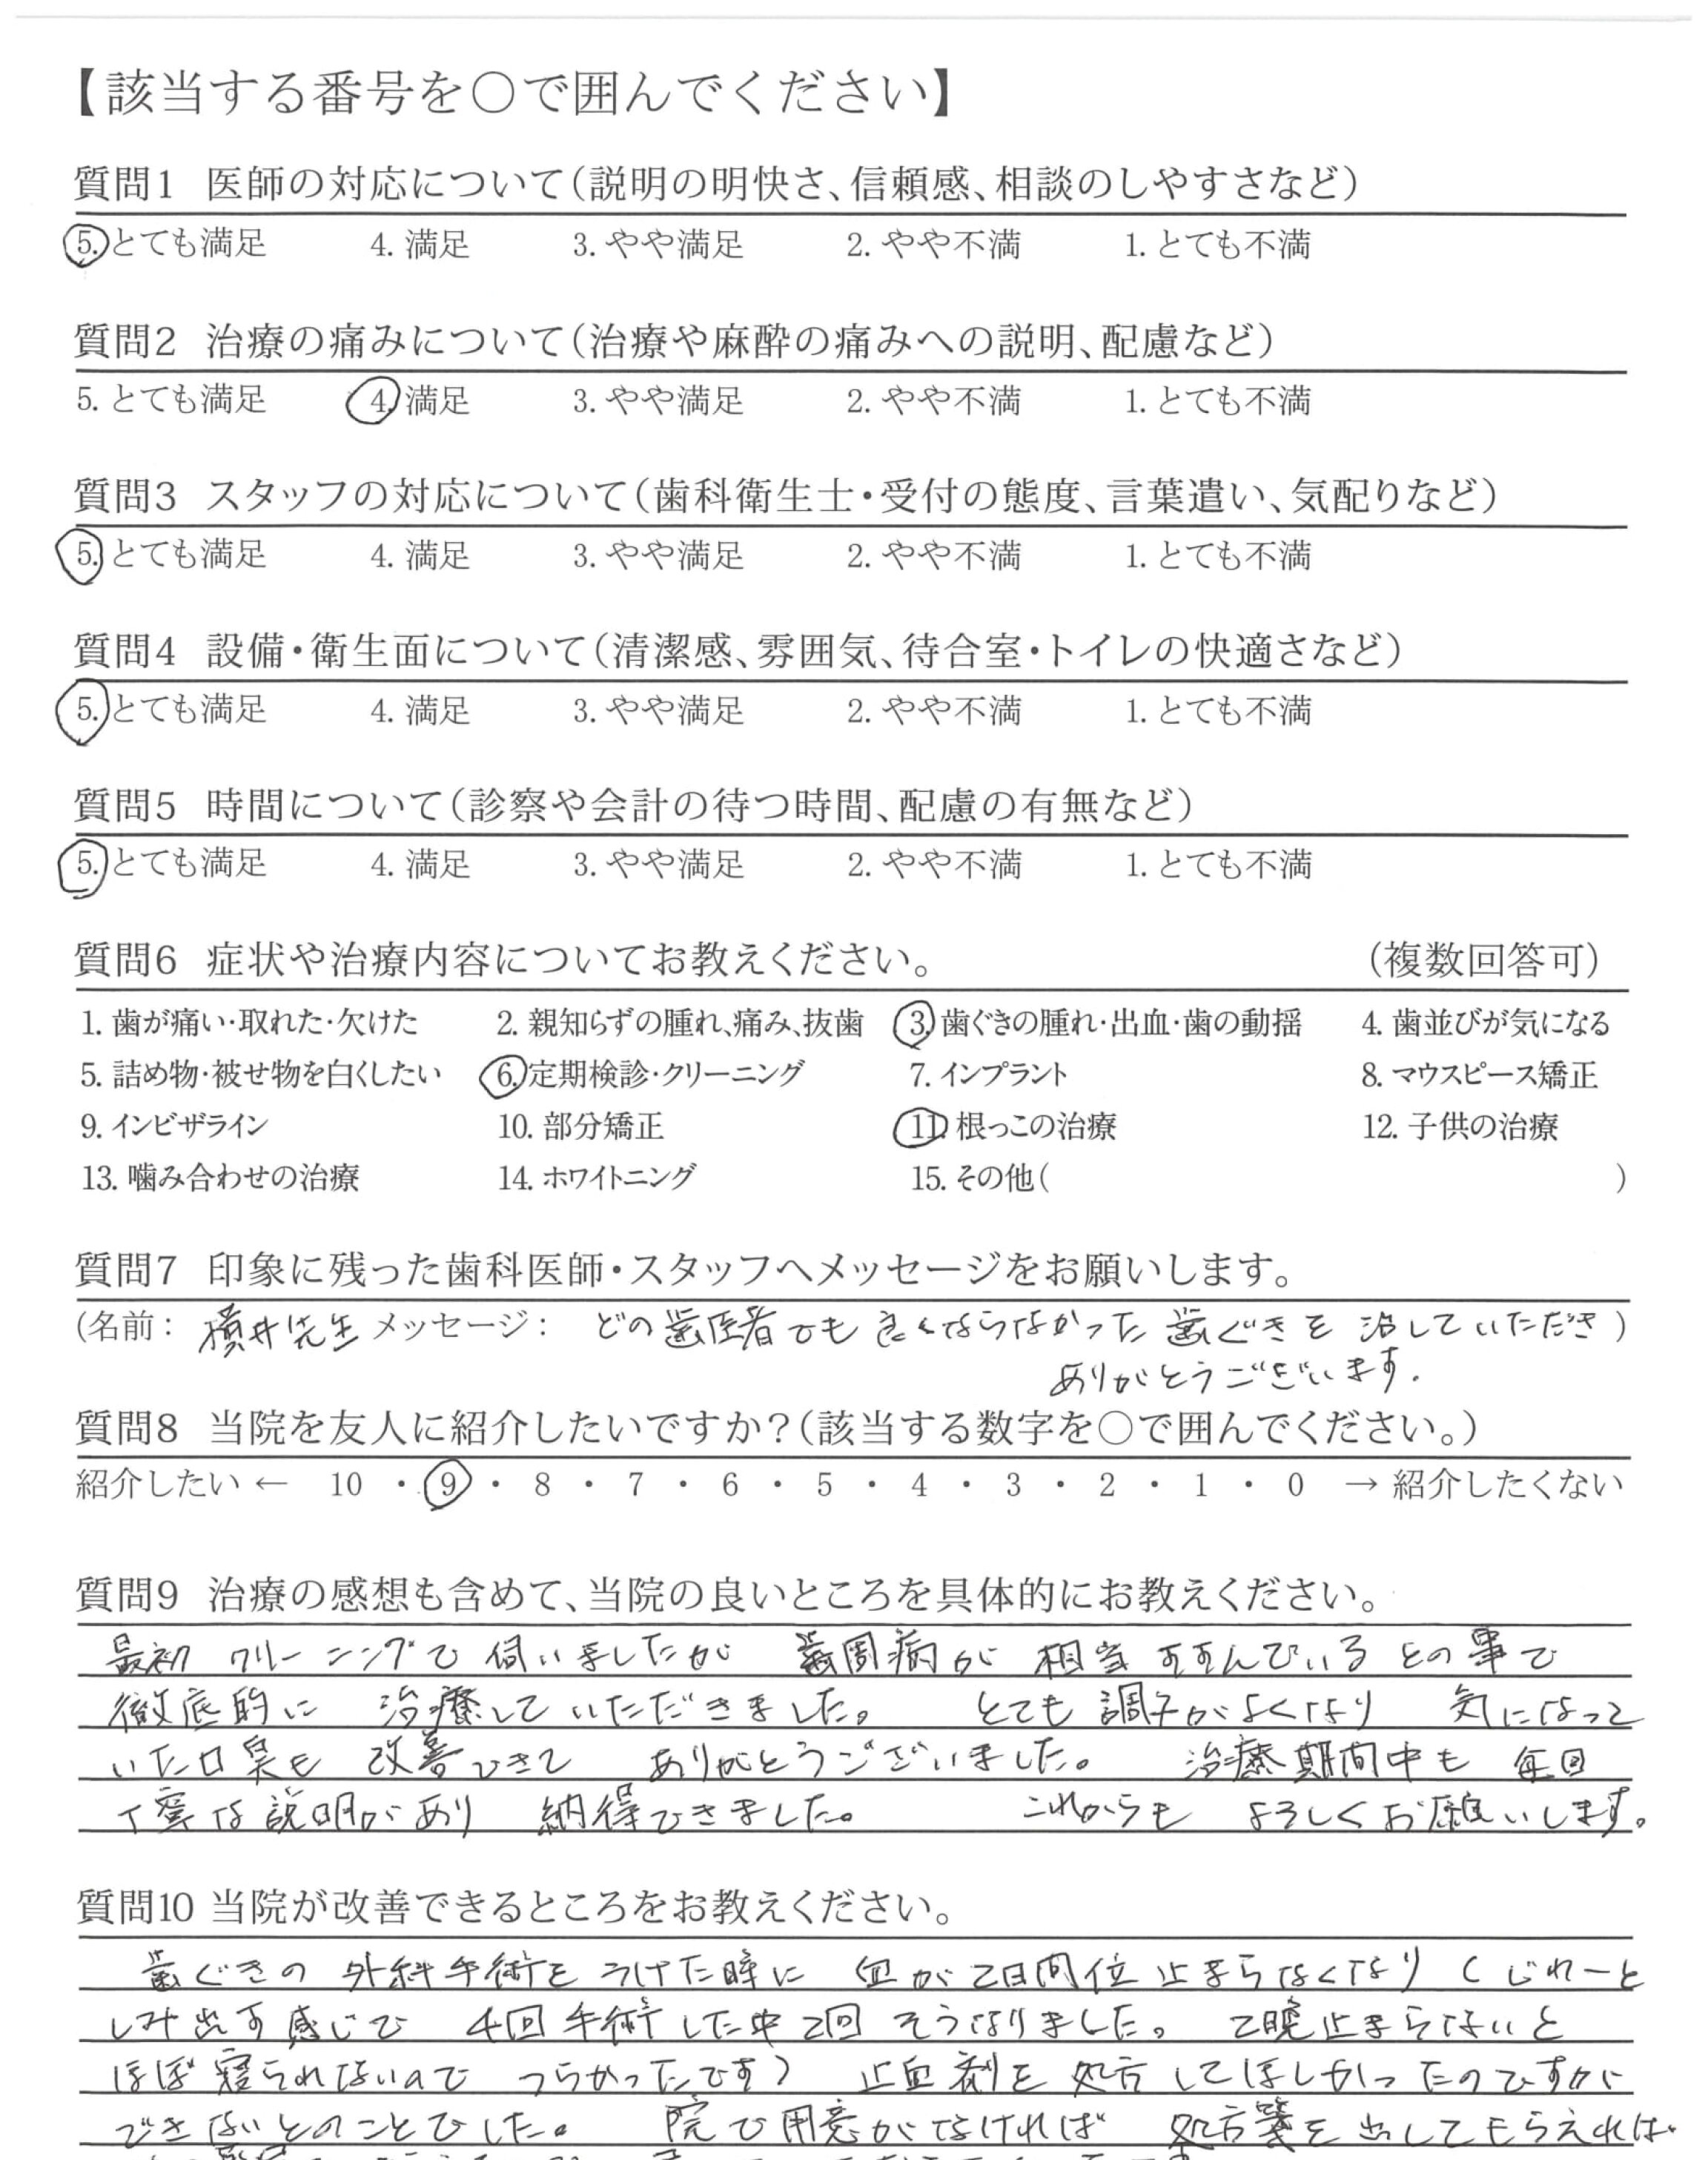 【該当する番号を○で囲んでください】
質問1 医師の対応について（説明の明快さ、信頼感、相談のしやすさなど）
5. とても満足 4. 満足 3. やや満足 2. やや不満 1. とても不満
質問2 治療の痛みについて（治療や麻酔の痛みへの説明、配慮など）
5. とても満足 4. 満足 3. やや満足 2. やや不満 1. とても不満
質問3 スタッフの対応について（歯科衛生士・受付の態度、言葉遣い、気配りなど）
5. とても満足 4. 満足 3. やや満足 2. やや不満 1. とても不満
質問4 設備・衛生面について（清潔感、雰囲気、待合室・トイレの快適さなど）
5. とても満足 4. 満足 3. やや満足 2. やや不満 1. とても不満
質問5 時間について（診察や会計の待つ時間、配慮の有無など）
5. とても満足 4. 満足 3. やや満足 2. やや不満 1. とても不満
質問6 症状や治療内容についてお教えください。 （複数回答可）
1. 歯が痛い・取れた・欠けた 2. 親知らずの腫れ、痛み、抜歯 3. 歯ぐきの腫れ・出血・歯の動揺 4. 歯並びが気になる
5. 詰め物・被せ物を白くしたい 6. 定期検診・クリーニング 7. インプラント 8. マウスピース矯正
9. インビザライン 10. 部分矯正 11. 根っこの治療 12. 子供の治療
13. 噛み合わせの治療 14. ホワイトニング 15. その他（ ）
質問7 印象に残った歯科医師・スタッフへメッセージをお願いします。
（名前： 横井先生 メッセージ： どの歯医者でも良くならなかった歯ぐきを治していただき）
ありがとうございます.
質問8 当院を友人に紹介したいですか？（該当する数字を○で囲んでください。）
紹介したい ← 10 ・ 9 ・ 8 ・ 7 ・ 6 ・ 5 ・ 4 ・ 3 ・ 2 ・ 1 ・ 0 → 紹介したくない
質問9 治療の感想も含めて、当院の良いところを具体的にお教えください。
最初 クリーニングで 伺いましたが 歯周病が 相当すすんでいる との事で
徹底的に 治療していただきました。 とても調子がよくなり 気になって
いた口臭も 改善できて ありがとうございました。 治療期間中も 毎回
丁寧な説明があり 納得できました。 これからも よろしくお願いします。
質問10 当院が改善できるところをお教えください。
歯ぐきの 外科手術を うけた時に 血が2日間位止まらなくなり （じわーと
しみ出す感じで 4回手術した中2回 そうなりました。 2晩止まらないと
ほぼ寝られないので つらかったです） 止血剤を 処方してほしかったのですが
できないとのことでした。 院で用意がなければ 処方箋を出してもらえれば